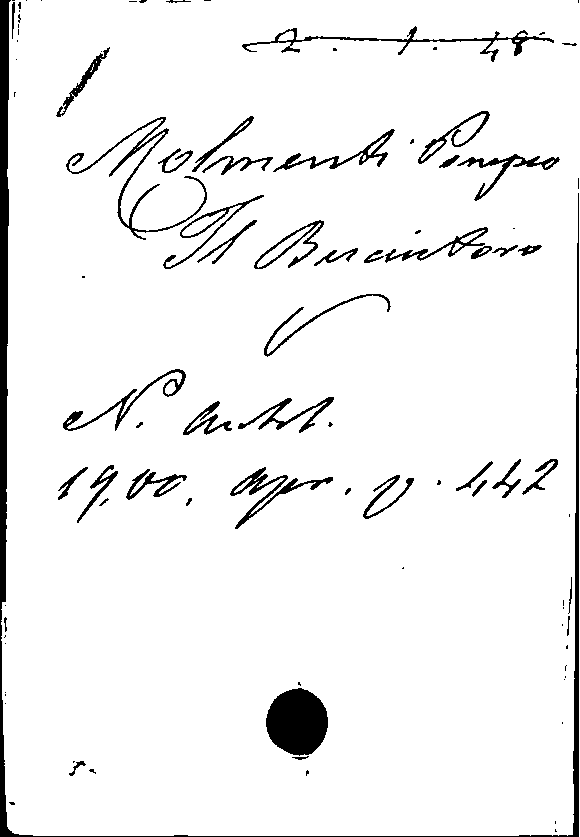 2. 1. 48
Molmenti Pompeo
Il Bucintoro
N. Antol.
1900. Apr. p. 442